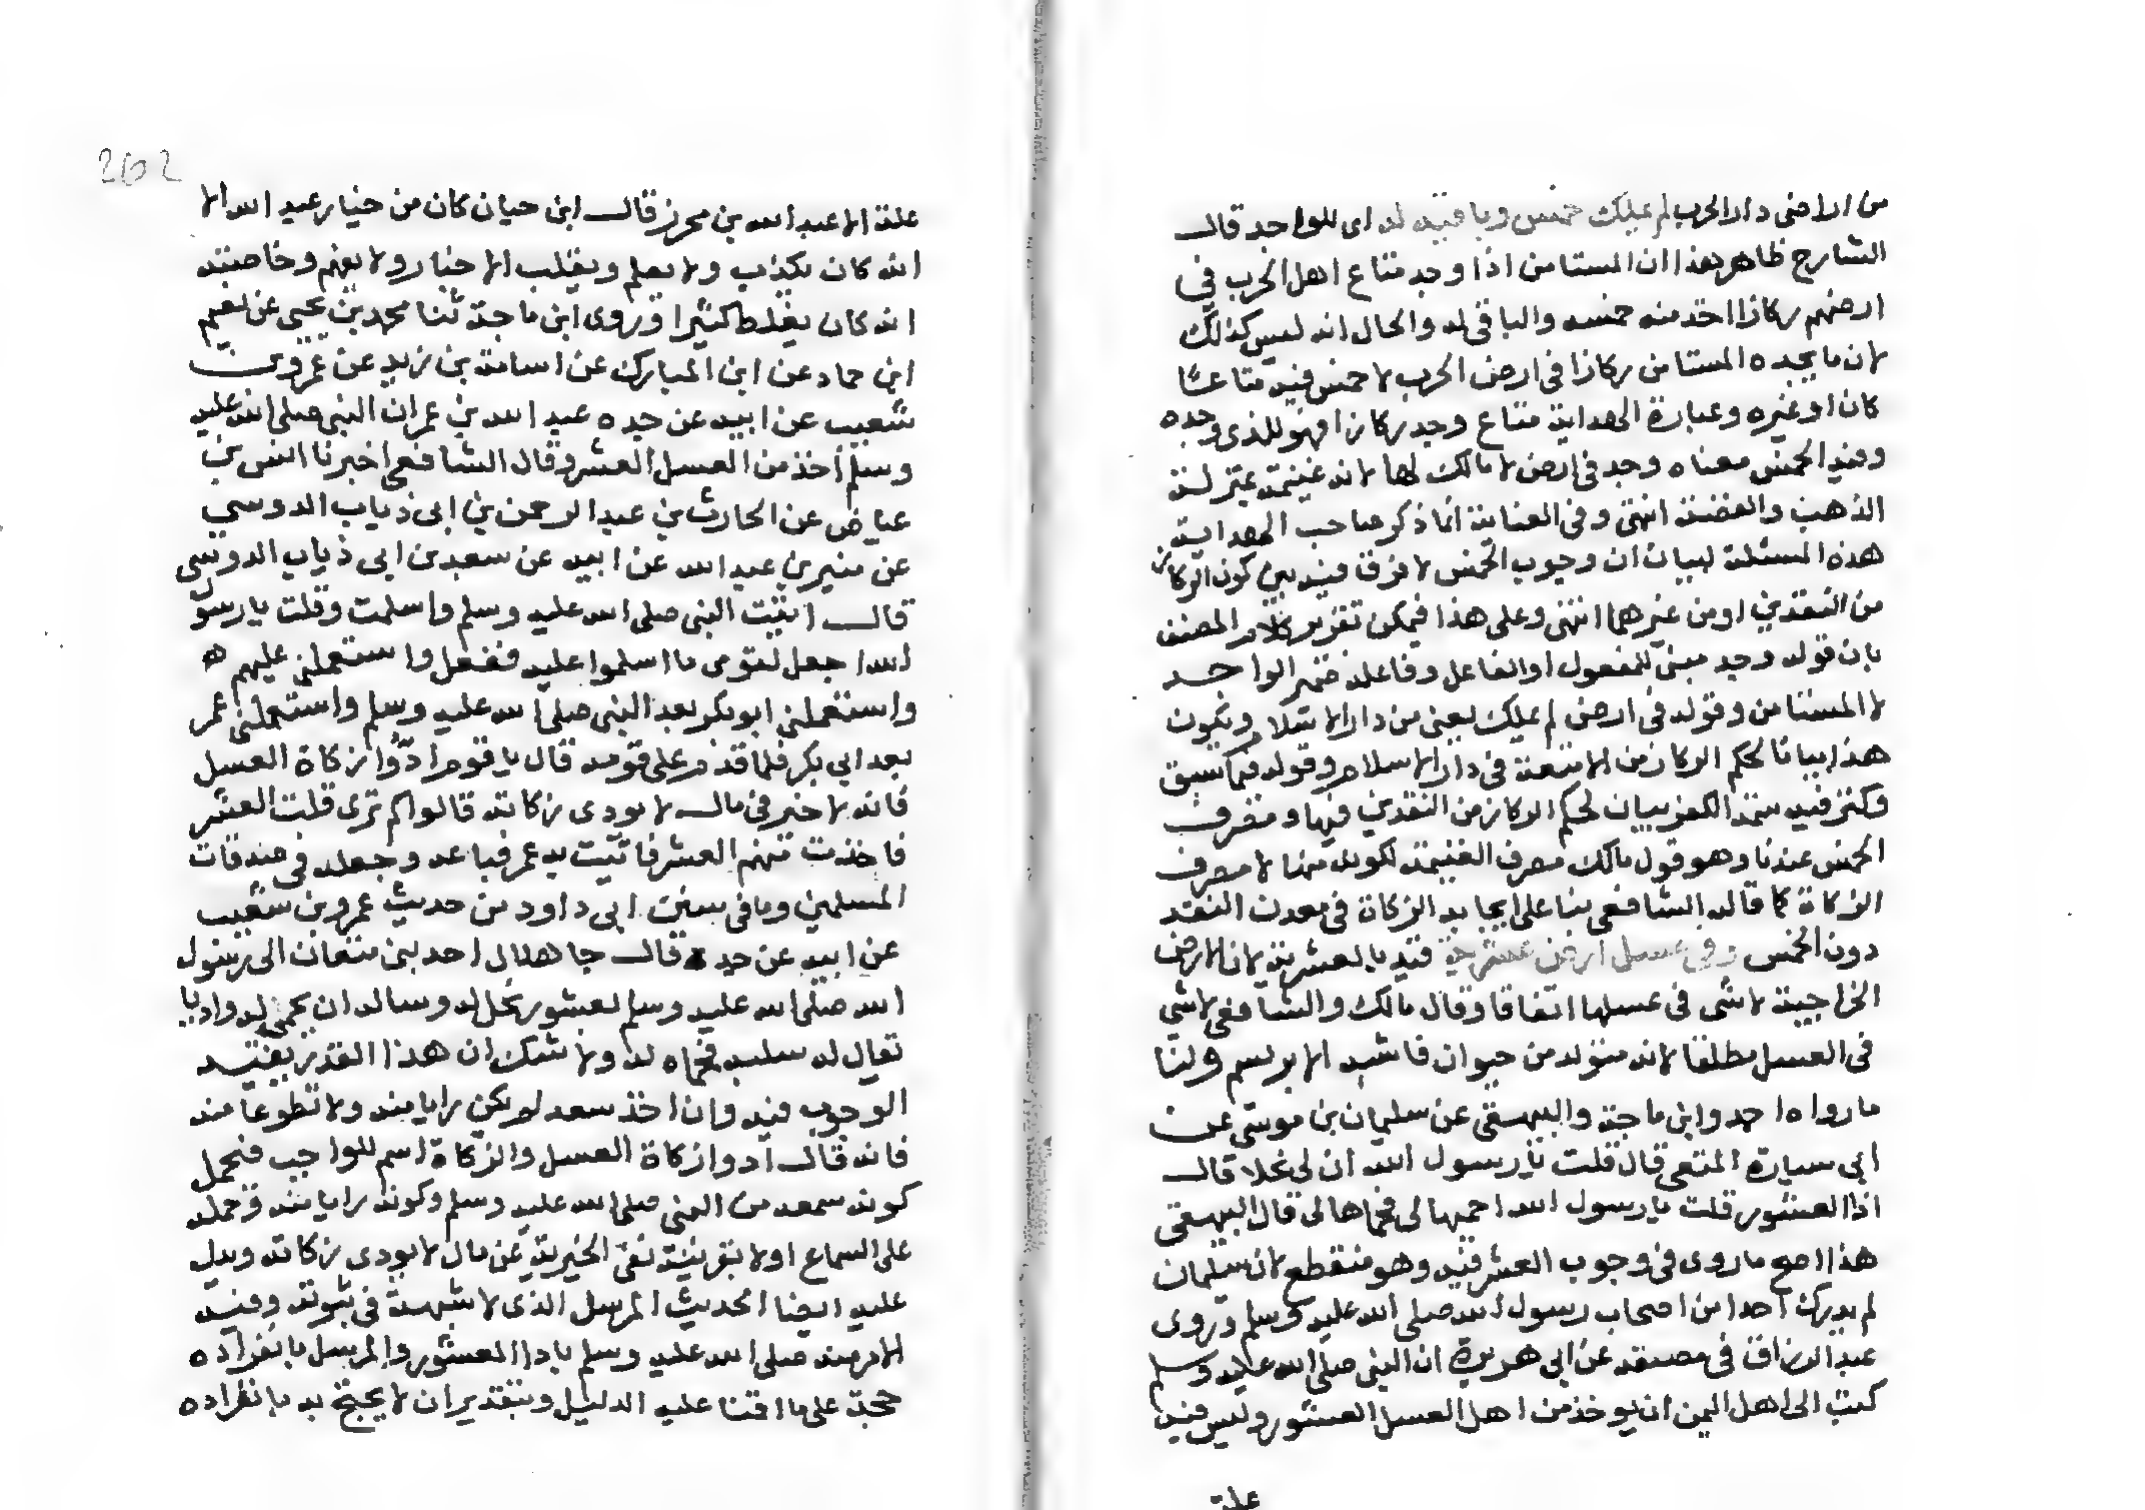 من اراضى دار الحرب لم يملك خمس وباقيه له اى للواجد قال
الشارح ظاهر هذا ان المستامن اذا وجد متاع اهل الحرب فى
ارضهم ركازا اخذ منه خمسه والباقى له والحال انه ليس كذلك
لان ما يجده المستامن ركازا فى ارض الحرب لا خمس فيه متاعا
كان او غيره وعبارة الهداية متاع وجد ركازا فهو للذى وجده
وفيه الخمس معناه وجد فى ارض لا مالك لها لانه غنيمة بمنزلة
الذهب والفضة انتهى وفى العناية انما ذكر صاحب الهداية
هذه المسئلة لبيان ان وجوب الخمس لا فرق فيه بين كون الركاز
من النقدين او من غيرهما انتهى وعلى هذا فيمكن تقرير كلام المصنف
بان قوله وجد مبنى للمفعول او الفاعل وفاعله ضمير الواحد
لا المستامن وقوله فى ارض لم يملك يعنى من دار الاسلام ويكون
هذا بيانا لحكم الركاز من الامتعة فى دار الاسلام وقوله فيما سبق
وكنز فيه سمة الكفر بيان لحكم الركاز من النقدين فيها ومصرف
الخمس عندنا وهو قول مالك مصرف الغنيمة لكونه منها لا مصرف
الزكاة كما قاله الشافعى بنا على ايجابه الزكاة فى معدن النقد
دون الخمس وفى عسل ارض عشرية قيد بالعشرية لان الارض
الخراجية لا شى فى عسلها اتفاقا وقال مالك والشافعى لا شى
فى العسل مطلقا لانه متولد من حيوان فاشبه الابريسم ولنا
ما رواه احمد وابن ماجة والبيهقى عن سليمان بن موسى عن
ابى سيارة المتعى قال قلت يا رسول الله ان لى نخلا قال
اذا العشور قلت يا رسول الله احمها لى فحماها لى قال البيهقى
هذا اصح ما روى فى وجوب العشر فيه وهو منقطع لان سليمان
لم يدرك احدا من اصحاب رسول الله صلى الله عليه وسلم وروى
عبد الرزاق فى مصنفه عن ابى هريرة ان النبى صلى الله عليه وسلم
كتب الى اهل اليمن ان يوخذ من اهل العسل العشور وليس فيه
علة
262
علة الا عبد الله بن محرز قال ابن حيان كان من خيار عبيد الله الا
انه كان يكذب ولا يعلم ويقلب الاخبار ولا يفهم وخاصته
انه كان يغلط كثيرا وروى ابن ماجة ثنا محمد بن يحيى عن نعيم
ابن حماد عن ابن المبارك عن اسامة بن زيد عن عمرو بن
شعيب عن ابيه عن جده عبد الله بن عمر ان النبى صلى الله عليه
وسلم اخذ من العسل العشر وقال الشافعى اخبرنا انس بن
عياض عن الحارث بن عبد الرحمن بن ابى ذباب الدوسى
عن منير بن عبد الله عن ابيه عن سعد بن ابى ذباب الدوسى
قال اتيت النبى صلى الله عليه وسلم واسلمت وقلت يا رسول
الله اجعل لقومى ما اسلموا عليه ففعل واستعملنى عليهم
واستعملنى ابو بكر بعد النبى صلى الله عليه وسلم واستعملنى عمر
بعد ابى بكر فلما قدم على قومه قال يا قوم ادوا زكاة العسل
فانه لا خير فى مال لا يودى زكاته قالوا كم ترى قلت العشر
فاخذت منهم العشر فاتيت به عمر فباعه وجعله فى صدقات
المسلمين وما فى سنن ابى داود من حديث عمرو بن شعيب
عن ابيه عن جده قال جا هلال احد بنى متعان الى رسول
الله صلى الله عليه وسلم بعشور نحل له وساله ان يحمى له واديا
يقال له سلبه فحماه له ولا شك ان هذا القدر يفيد
الوجوب فيه وان اخذ سعد لم يكن رايا منه ولا تطوعا منه
فانه قال ادوا زكاة العسل والزكاة اسم للواجب فيحمل
كونه سمعه من النبى صلى الله عليه وسلم وكونه رايا منه وحمله
على السماع اولا بقرينة نفى الخيرية عن مال لا يودى زكاته ويدل
عليه ايضا الحديث المرسل الذى لا شبهة فى ثبوته وفيه
الامر منه صلى الله عليه وسلم بادا العشور والمرسل بانفراده
حجة على ما اقمنا عليه الدليل وبتقدير ان لا يحتج به بانفراده